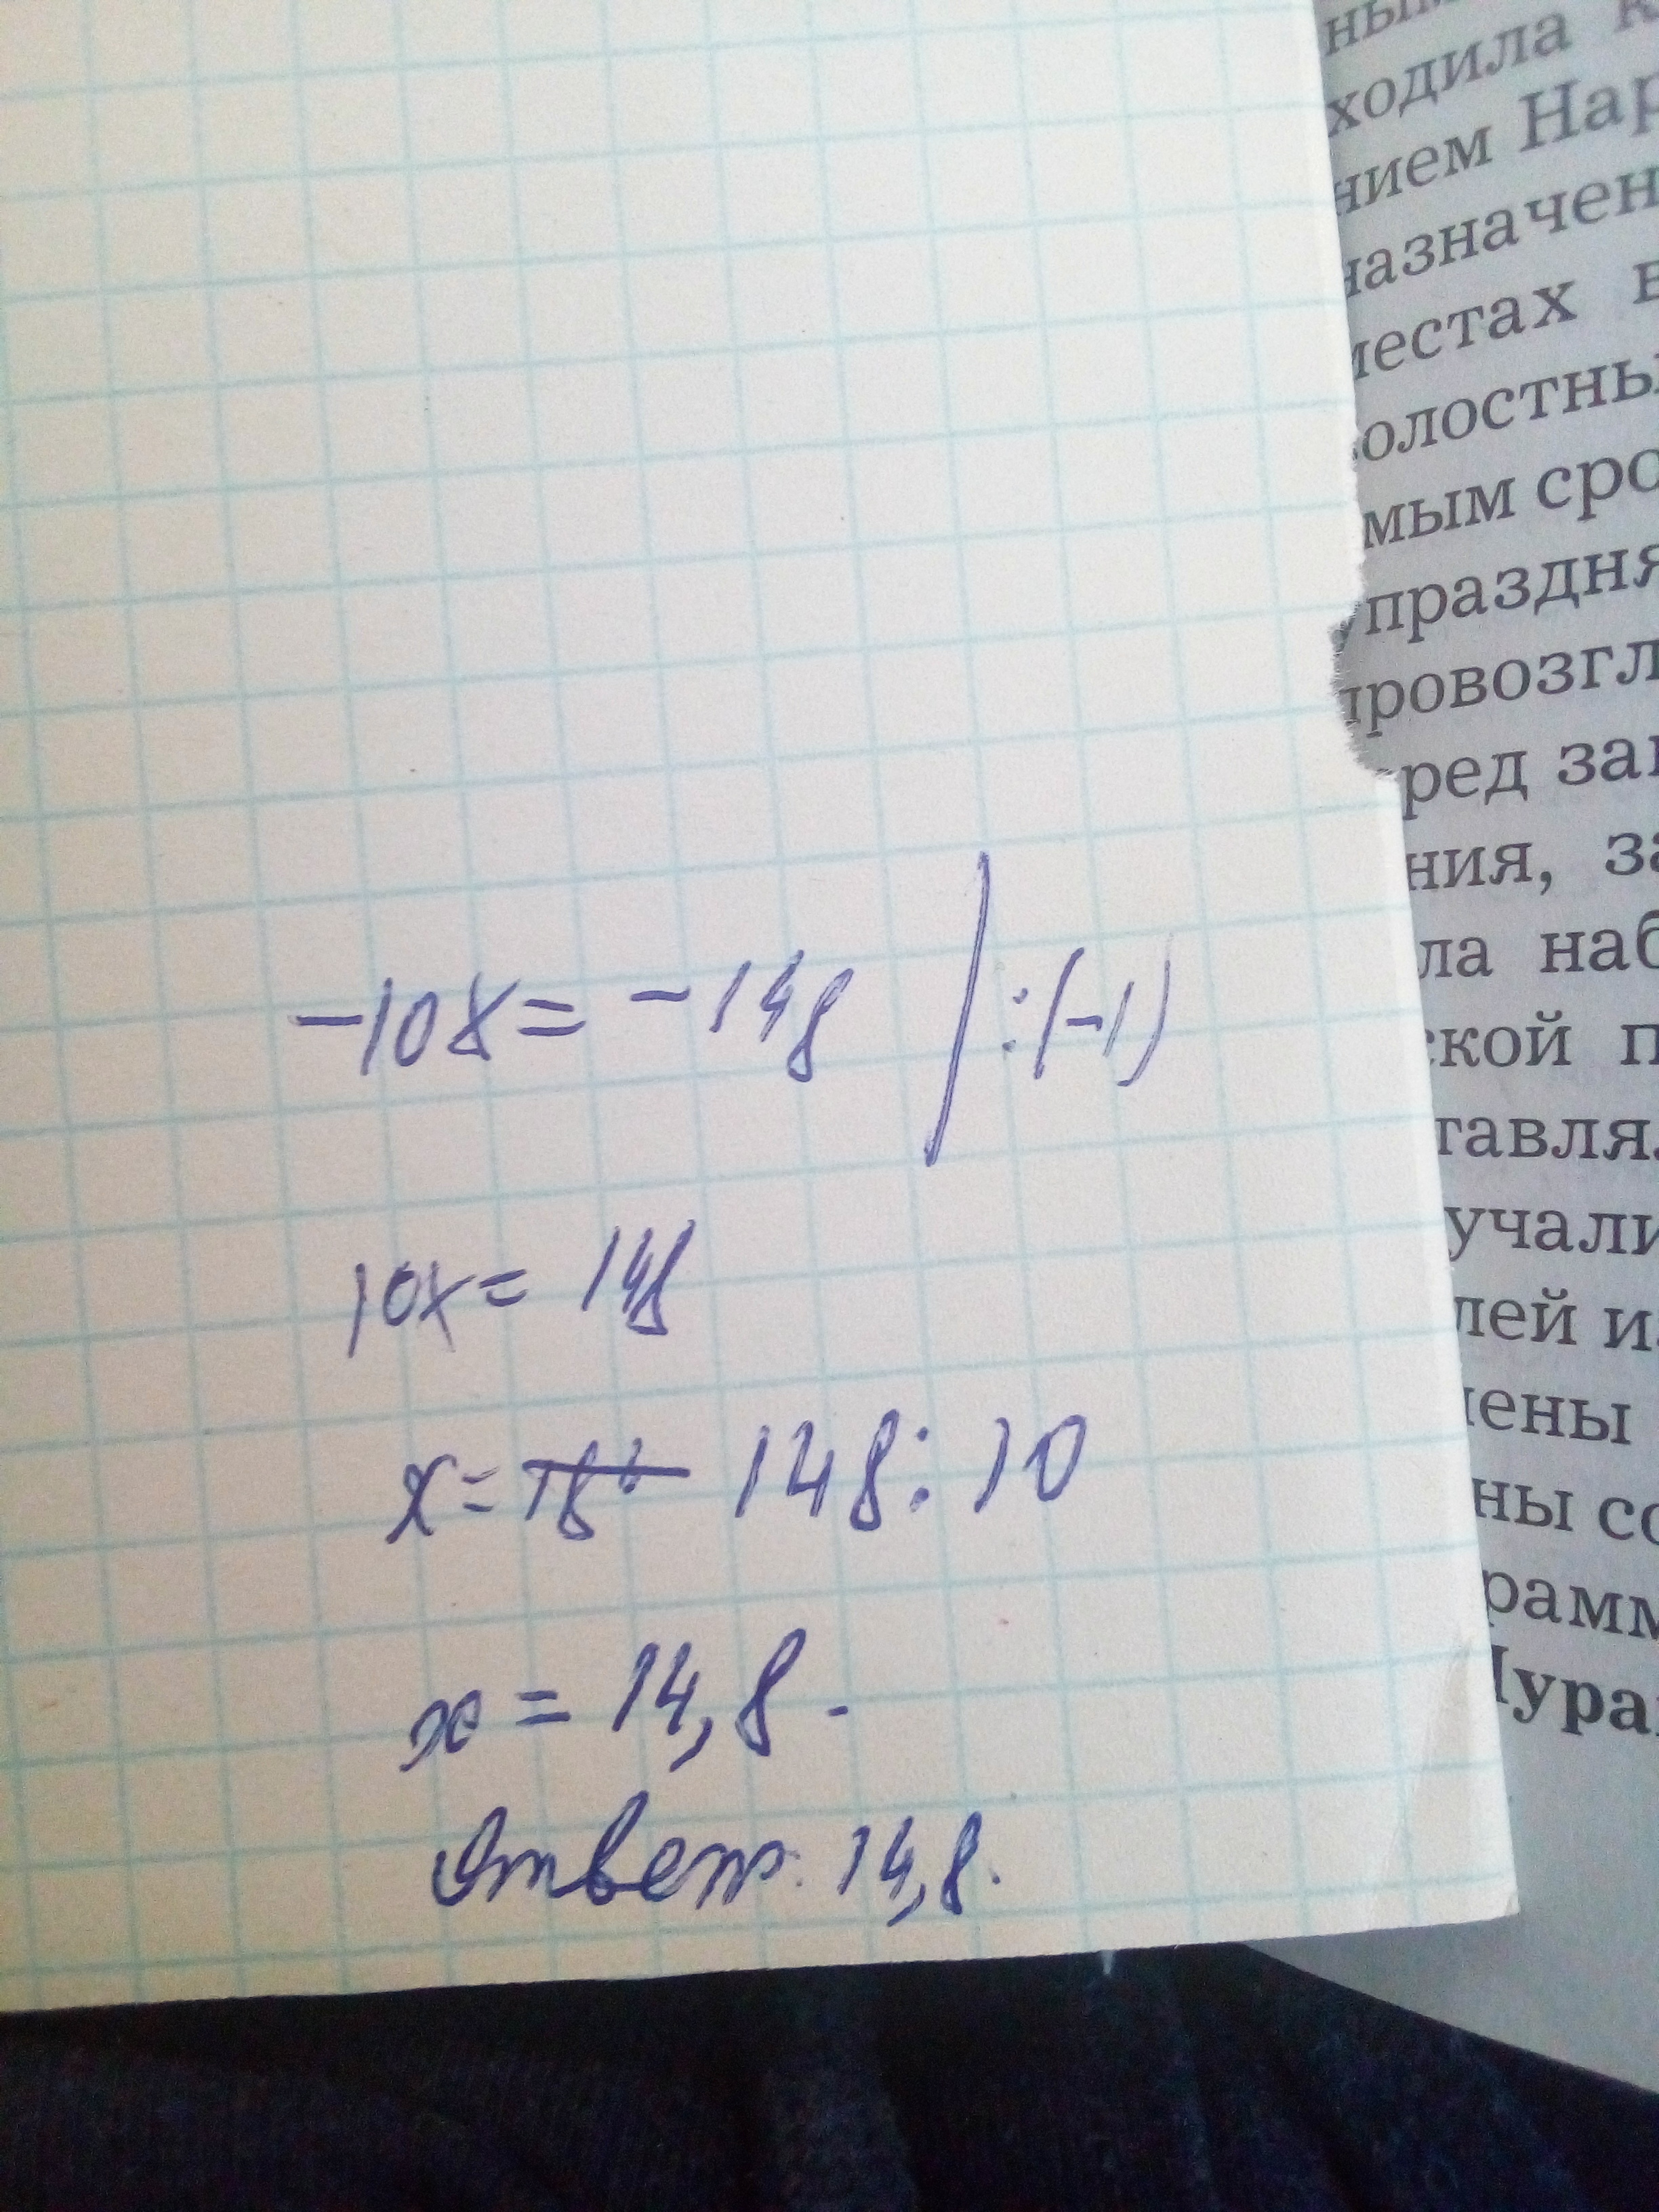 -10x = -148 | :(-1)
10x = 148
x = 148 : 10
x = 14,8.
Ответ: 14,8.
ходила
нием Нар
назначен
местах в
олостны
мым сро
упраздня
провозгл
ред за
ния, за
ла наб
ской п
тавля
учали
лей из
ены
ны со
рамм
Мура